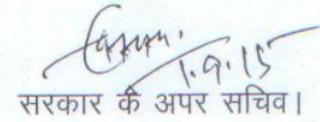 1.9.15
सरकार के अपर सचिव।